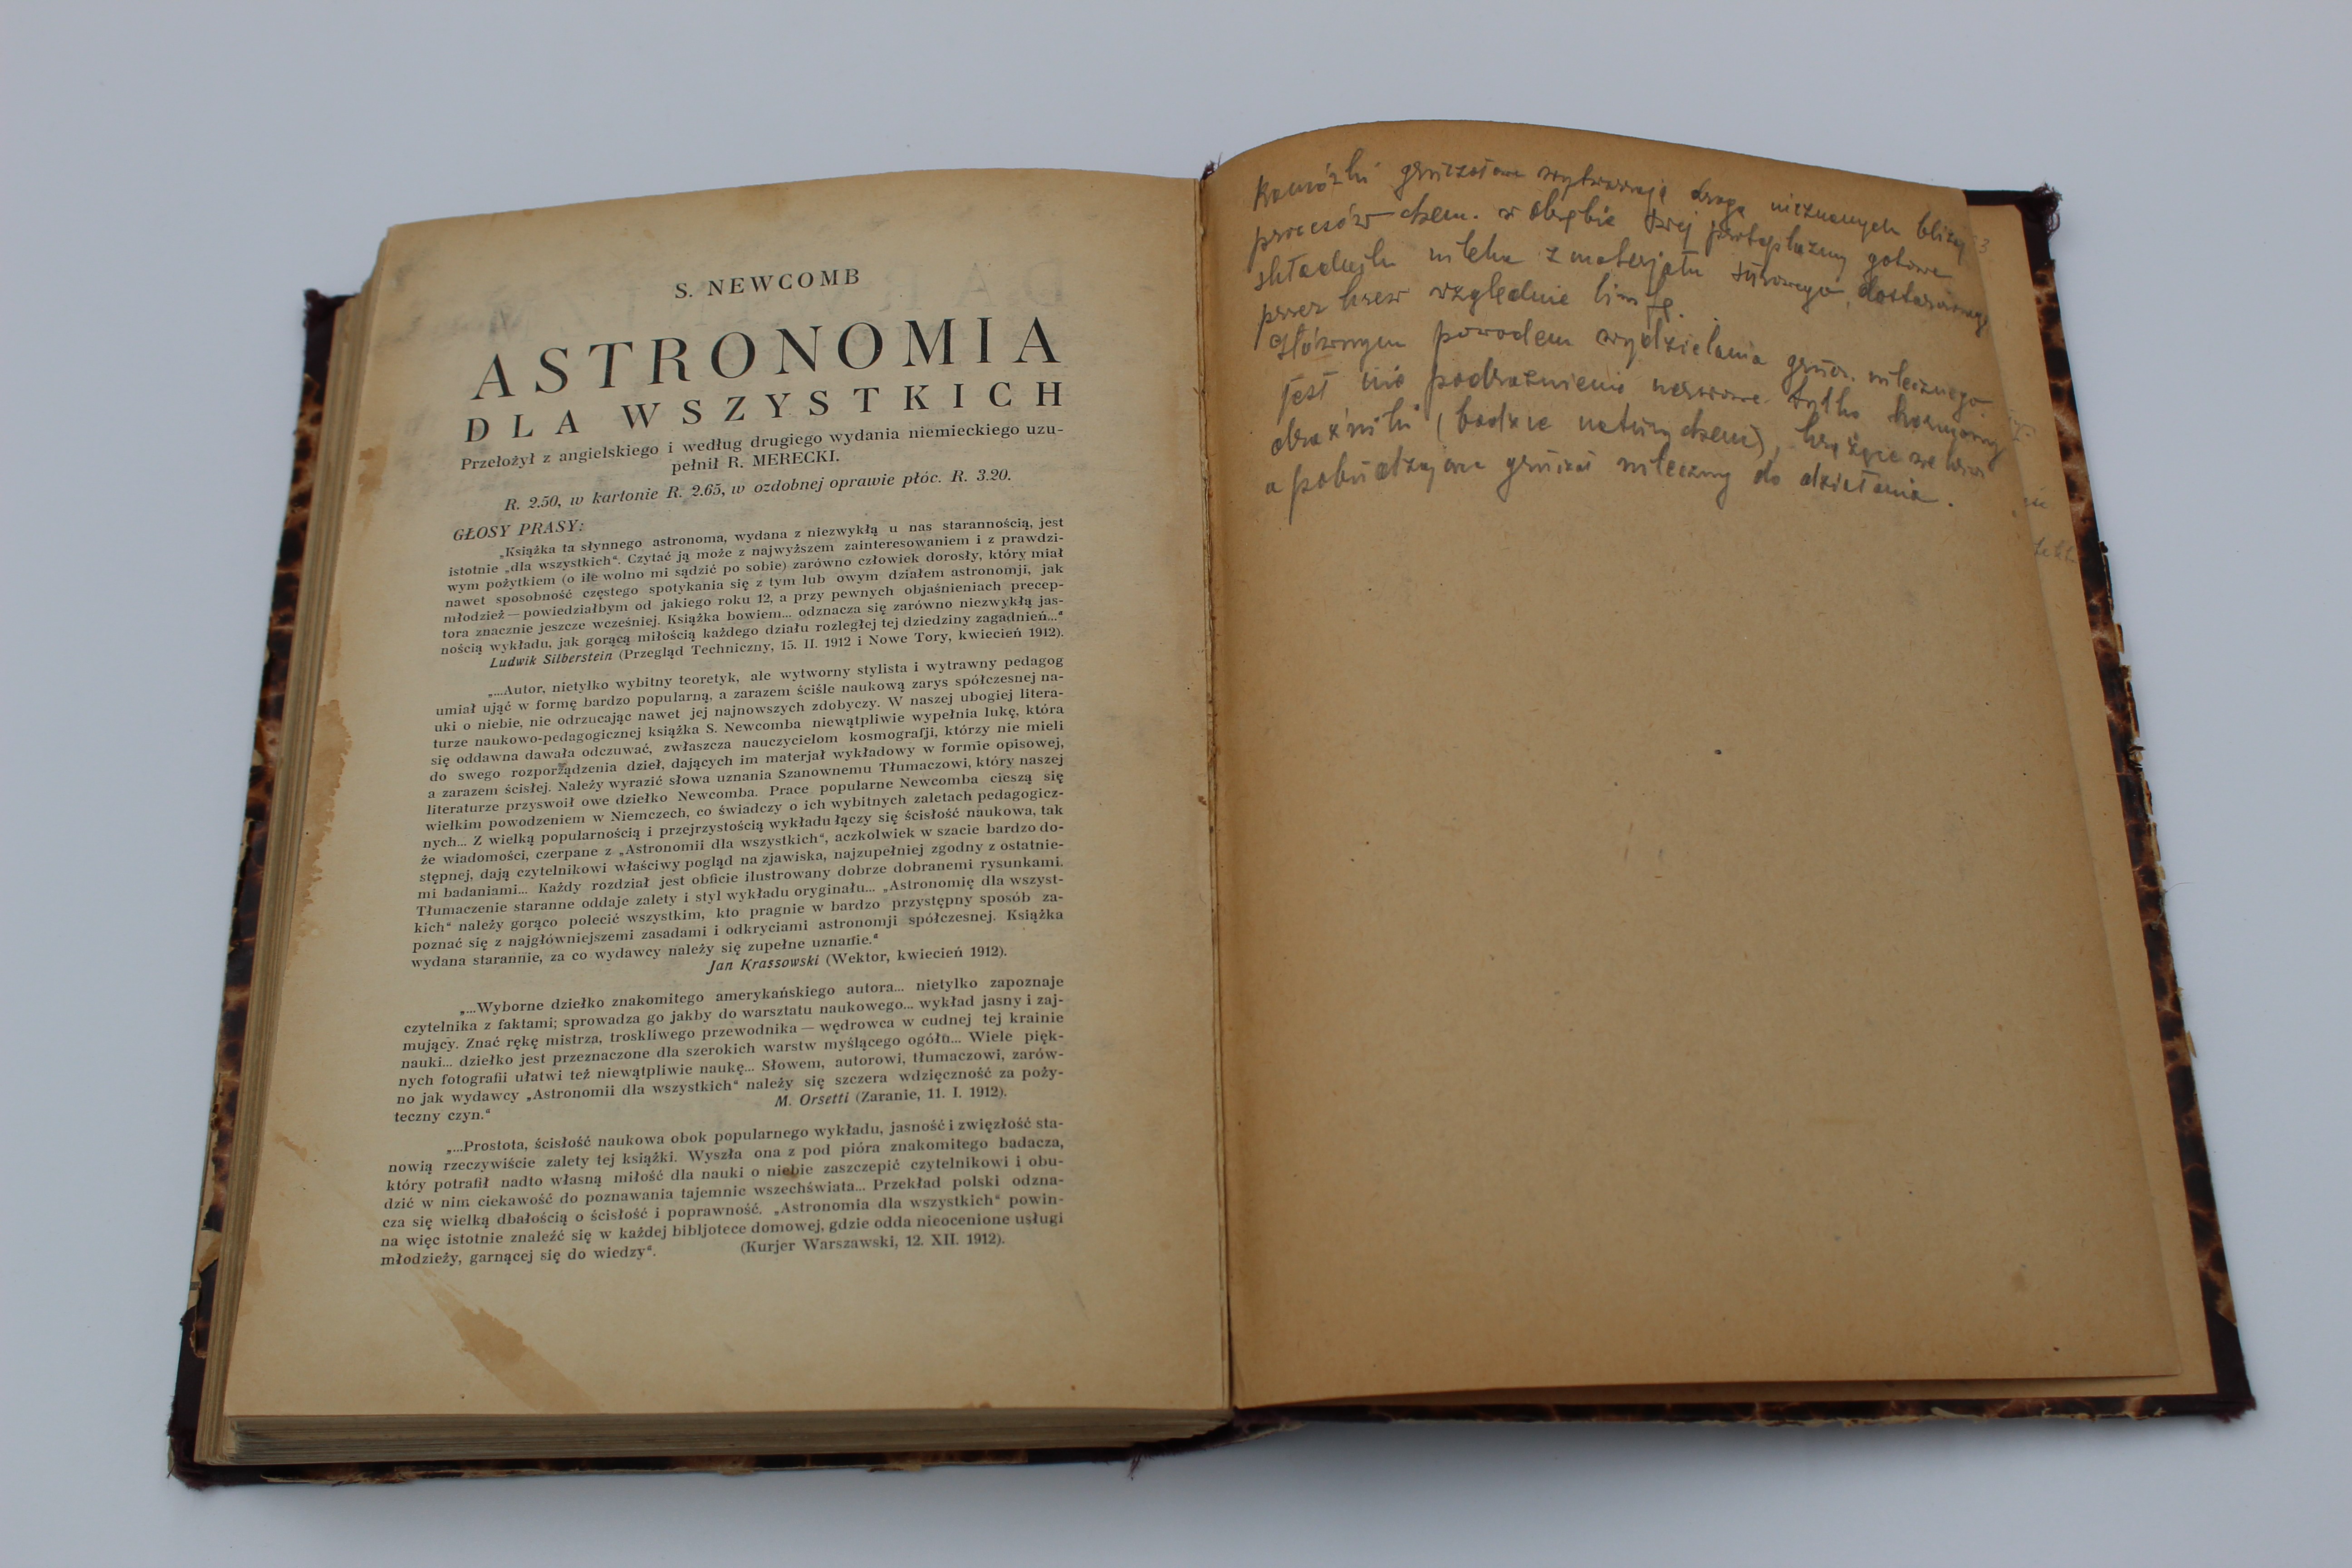 S. NEWCOMB
ASTRONOMIA
DLA WSZYSTKICH
Przełożył z angielskiego i według drugiego wydania niemieckiego uzu-
pełnił R. MERECKI.
R. 2.50, w kartonie R. 2.65, w ozdobnej oprawie płóc. R. 3.20.
GŁOSY PRASY:
„Książka ta słynnego astronoma, wydana z niezwykłą u nas starannością, jest
istotnie „dla wszystkich“. Czytać ją może z najwyższem zainteresowaniem i z prawdzi-
wym pożytkiem (o ile wolno mi sądzić po sobie) zarówno człowiek dorosły, który miał
nawet sposobność częstego spotykania się z tym lub owym działem astronomji, jak
młodzież — powiedziałbym od jakiego roku 12, a przy pewnych objaśnieniach precep-
tora znacznie jeszcze wcześniej. Książka bowiem... odznacza się zarówno niezwykłą jas-
nością wykładu, jak gorącą miłością każdego działu rozległej tej dziedziny zagadnień...“
Ludwik Silberstein (Przegląd Techniczny, 15. II. 1912 i Nowe Tory, kwiecień 1912).
„...Autor, nietylko wybitny teoretyk, ale wytworny stylista i wytrawny pedagog
umiał ująć w formę bardzo popularną, a zarazem ściśle naukową zarys spółczesnej na-
uki o niebie, nie odrzucając nawet jej najnowszych zdobyczy. W naszej ubogiej litera-
turze naukowo-pedagogicznej książka S. Newcomba niewątpliwie wypełnia lukę, która
się oddawna dawała odczuwać, zwłaszcza nauczycielom kosmografji, którzy nie mieli
do swego rozporządzenia dzieł, dających im materjał wykładowy w formie opisowej,
a zarazem ścisłej. Należy wyrazić słowa uznania Szanownemu Tłumaczowi, który naszej
literaturze przyswoił owe dziełko Newcomba. Prace popularne Newcomba cieszą się
wielkim powodzeniem w Niemczech, co świadczy o ich wybitnych zaletach pedagogicz-
nych... Z wielką popularnością i przejrzystością wykładu łączy się ścisłość naukowa, tak
że wiadomości, czerpane z „Astronomii dla wszystkich“, aczkolwiek w szacie bardzo do-
stępnej, dają czytelnikowi właściwy pogląd na zjawiska, najzupełniej zgodny z ostatnie-
mi badaniami... Każdy rozdział jest obficie ilustrowany dobrze dobranemi rysunkami.
Tłumaczenie staranne oddaje zalety i styl wykładu oryginału... „Astronomię dla wszyst-
kich“ należy gorąco polecić wszystkim, kto pragnie w bardzo przystępny sposób za-
poznać się z najgłówniejszemi zasadami i odkryciami astronomji spółczesnej. Książka
wydana starannie, za co wydawcy należy się zupełne uznanie.“
Jan Krassowski (Wektor, kwiecień 1912).
„...Wyborne dziełko znakomitego amerykańskiego autora... nietylko zapoznaje
czytelnika z faktami; sprowadza go jakby do warsztatu naukowego... wykład jasny i zaj-
mujący. Znać rękę mistrza, troskliwego przewodnika — wędrowca w cudnej tej krainie
nauki... dziełko jest przeznaczone dla szerokich warstw myślącego ogółu... Wiele pięk-
nych fotografii ułatwi też niewątpliwie naukę... Słowem, autorowi, tłumaczowi, zarów-
no jak wydawcy „Astronomii dla wszystkich“ należy się szczera wdzięczność za poży-
teczny czyn.“
M. Orsetti (Zaranie, 11. I. 1912).
„...Prostota, ścisłość naukowa obok popularnego wykładu, jasność i zwięzłość sta-
nowią rzeczywiście zalety tej książki. Wyszła ona z pod pióra znakomitego badacza,
który potrafił nadto własną miłość dla nauki o niebie zaszczepić czytelnikowi i obu-
dzić w nim ciekawość do poznawania tajemnic wszechświata... Przekład polski odzna-
cza się wielką dbałością o ścisłość i poprawność. „Astronomia dla wszystkich“ powin-
na więc istotnie znaleźć się w każdej bibljotece domowej, gdzie odda nieocenione usługi
młodzieży, garnącej się do wiedzy“.
(Kurjer Warszawski, 12. XII. 1912).
Komórki gruczołowe wytwarzają drogą nieznanych bliżej
procesów chem. w obrębie swej protoplazmy gotowe
składniki mleka z materjału surowego, dostarczonego
przez krew względnie limfę.
Głównym powodem wydzielania grucz. mlecznego
jest nie podrażnienie nerwowe tylko hormony
drażniki (bodźce natury chem), krążące we krwi
a pobudzające gruczoł mleczny do działania.